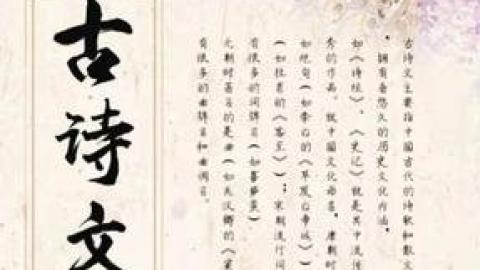 古诗文
古诗文主要指中國古代的诗歌和散文
。拥有着悠久的历史文化内涵。
如《诗经》、《史记》就是其中流传
秀的作品。就中國文化而名。唐朝时
如绝句（如李白的《早发白帝城》）
（如杜甫的《客至》）；宋朝流行词
有很多的词牌名（如菩萨蛮）
元朝时著名的是曲（如关汉卿的《窦
有很多的曲牌名和曲调名。